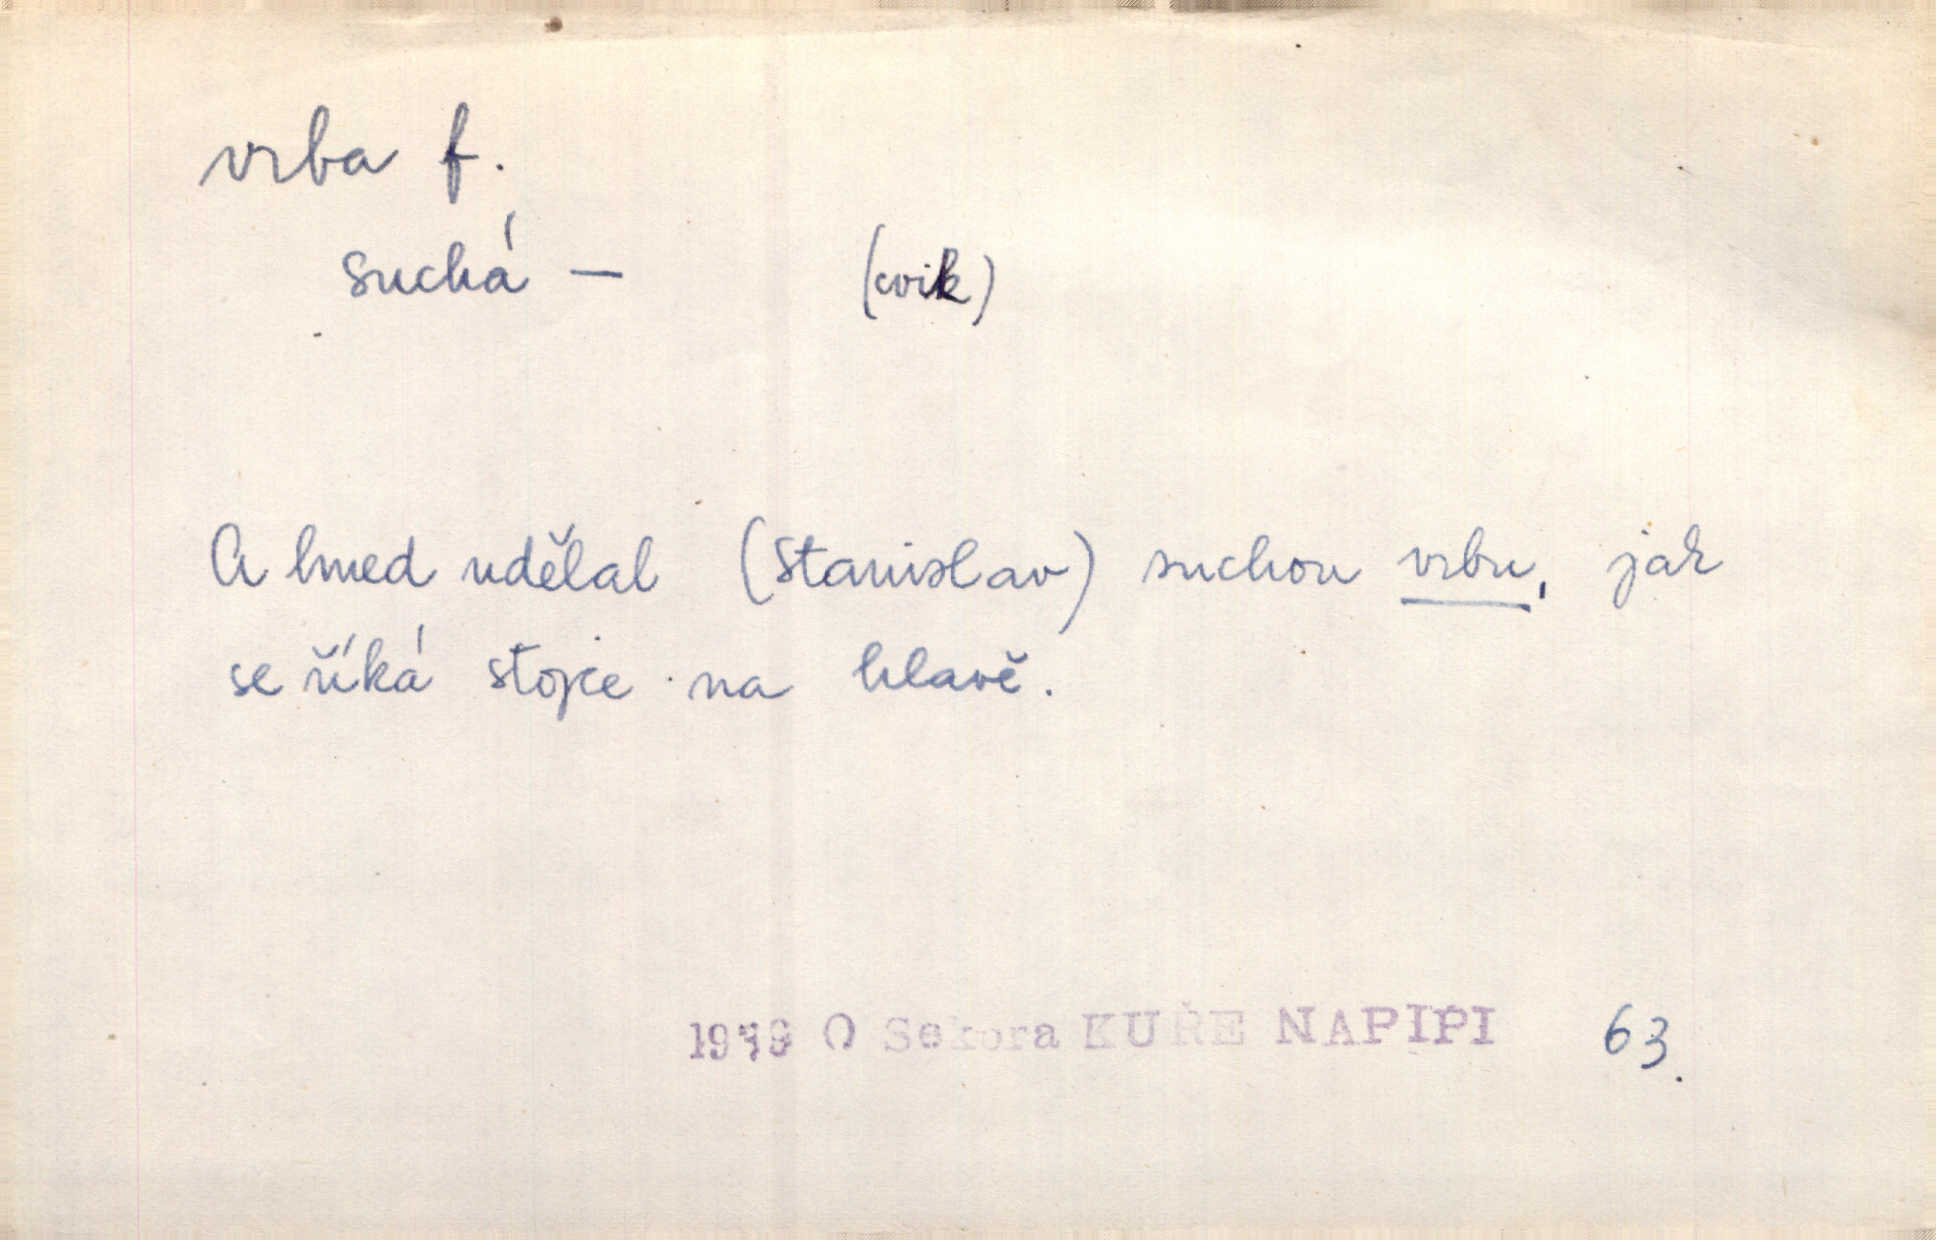 vrba f.
suchá — (cvik)
A hned udělal (Stanislav) suchou vrbu, jak
se říká stojce na hlavě.
O Sekora KUŘE NAPIPI 63.